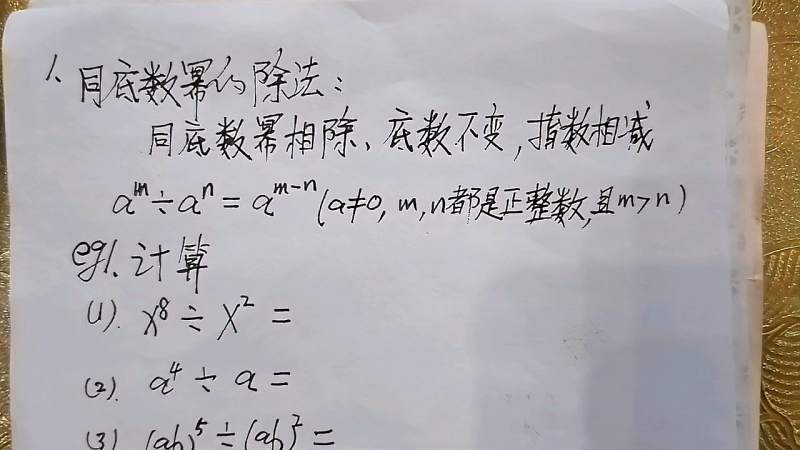 1、同底数幂的除法：
同底数幂相除、底数不变，指数相减
a^m÷a^n=a^{m-n}(a≠0, m,n都是正整数,且m>n)
eg1.计算
(1). x^8÷x^2=
(2). a^4÷a=
(3) (ab)^5÷(ab)^2=